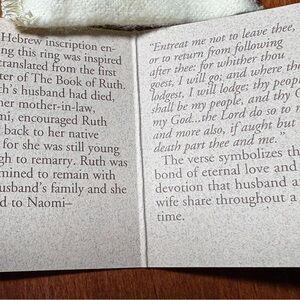 Hebrew inscription en-
ng this ring was inspired
translated from the first
ter of The Book of Ruth.
h's husband had died,
er mother-in-law,
mi, encouraged Ruth
back to her native
for she was still young
gh to remarry. Ruth was
mined to remain with
usband's family and she
d to Naomi–
"Entreat me not to leave thee,
or to return from following
after thee: for whither thou
goest, I will go; and where th
lodgest, I will lodge; thy peopl
shall be my people, and thy G
my God...the Lord do so to
and more also, if aught but
death part thee and me."
The verse symbolizes th
bond of eternal love and
devotion that husband a
wife share throughout a
time.